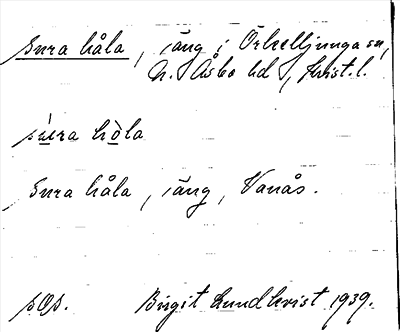 Sura håla, äng i Örkelljunga sn,
N. Åsbo hd, Krist. l.
sura hòla
Sura håla, äng, Vanås.
sOs. Birgit Lundkvist 1939.